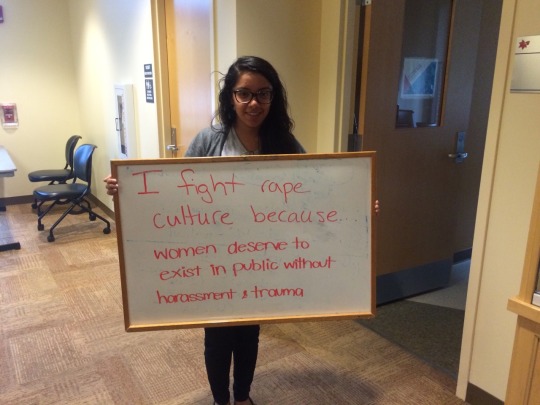 I fight rape
culture because...
women deserve to
exist in public without
harassment & trauma